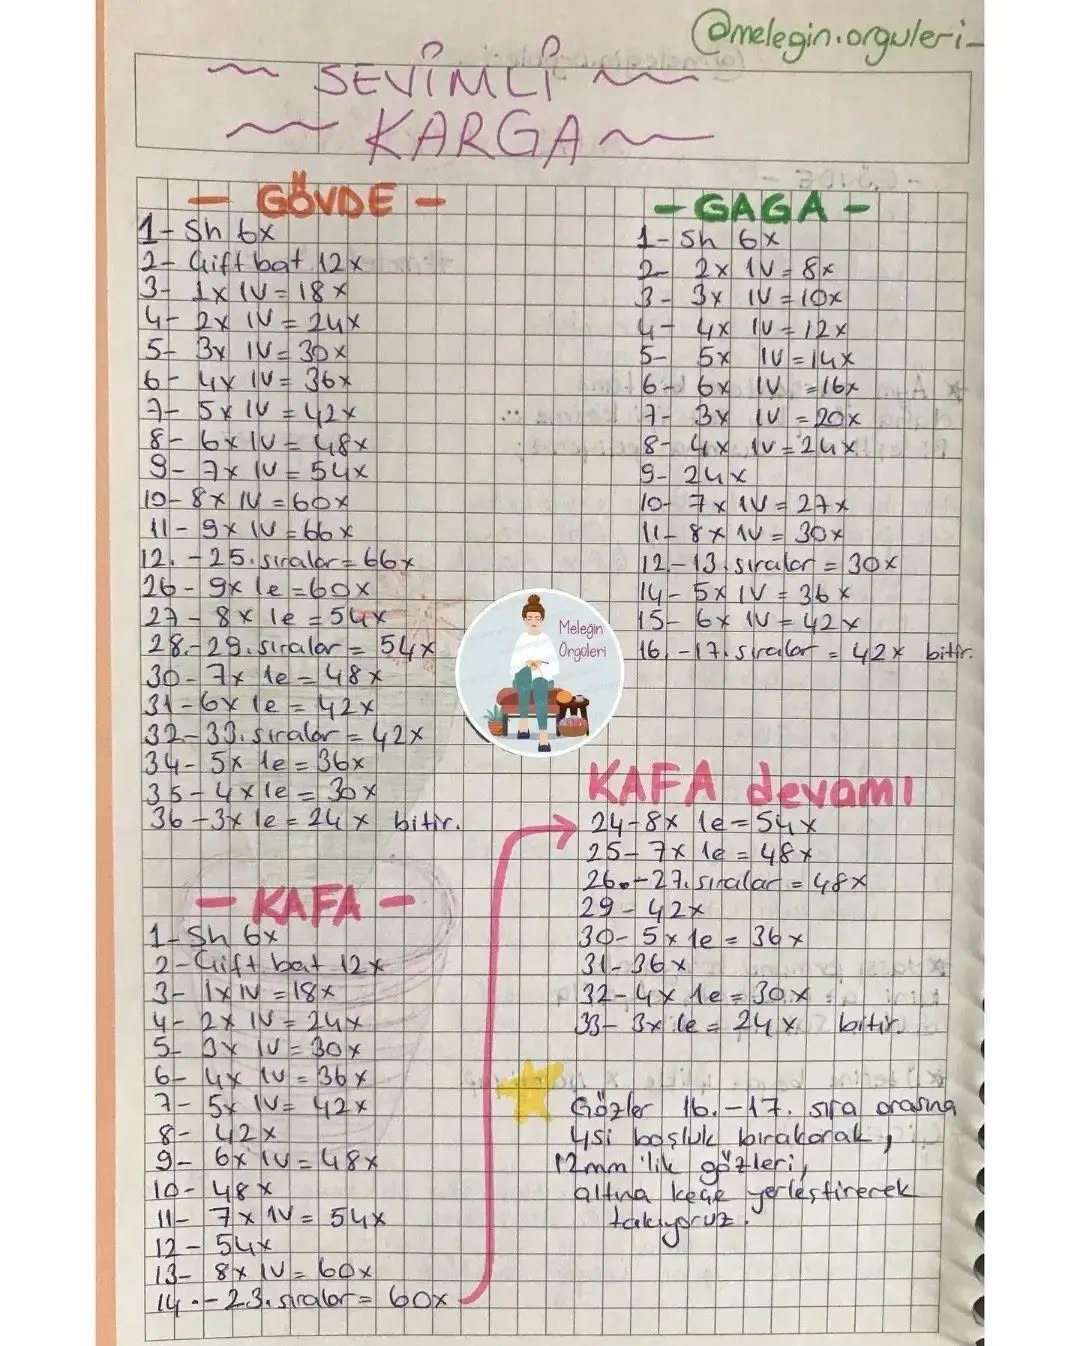 @melegin.orguleri-
SEVİMLİ
KARGA
- GÖVDE -
1- Sh 6x
2- Çift bat 12x
3- 1x 1V = 18x
4- 2x 1V = 24x
5- 3x 1V = 30x
6- 4x 1V = 36x
7- 5x 1V = 42x
8- 6x 1V = 48x
9- 7x 1V = 54x
10- 8x 1V = 60x
11- 9x 1V = 66x
12. -25. sıralar = 66x
26- 9x 1e = 60x
27- 8x 1e = 54x
28.-29. sıralar = 54x
30- 7x 1e = 48x
31- 6x 1e = 42x
32-33. sıralar = 42x
34- 5x 1e = 36x
35- 4x 1e = 30x
36- 3x 1e = 24x bitir.
- GAGA -
1- Sh 6x
2- 2x 1V = 8x
3- 3x 1V = 10x
4- 4x 1V = 12x
5- 5x 1V = 14x
6- 6x 1V = 16x
7- 3x 1V = 20x
8- 4x 1V = 24x
9- 24x
10- 7x 1V = 27x
11- 8x 1V = 30x
12.-13. sıralar = 30x
14- 5x 1V = 36x
15- 6x 1V = 42x
16. -17. sıralar = 42x bitir.
Meleğin
Örgüleri
- KAFA -
1- Sh 6x
2- Çift bat 12x
3- 1x 1V = 18x
4- 2x 1V = 24x
5- 3x 1V = 30x
6- 4x 1V = 36x
7- 5x 1V = 42x
8- 42x
9- 6x 1V = 48x
10- 48x
11- 7x 1V = 54x
12- 54x
13- 8x 1V = 60x
14.-23. sıralar = 60x
KAFA devamı
24- 8x 1e = 54x
25- 7x 1e = 48x
26.-27. sıralar = 48x
29- 42x
30- 5x 1e = 36x
31- 36x
32- 4x 1e = 30x
33- 3x 1e = 24x bitir.
Gözler 16. -17. sıra arasına
4si boşluk bırakarak,
12mm'lik gözleri,
altına keçe yerleştirerek
takıyoruz.